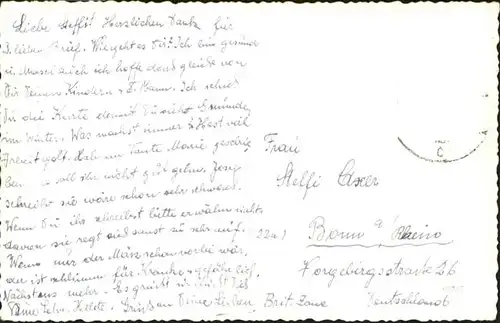 Liebe Steffi! Herzlichen Dank für
D. lieben Brief. Wie geht es Dir? Ich bin gesund
u. Mansi auch ich hoffe dass gleiche von
Dir Deinen Kindern u. D. Mann. Ich schick
Dir die Karte damit Du siehst Gmunden
im Winter. Was machst immer? Hast viel
Arbeit gelt. Hab von Tante Marie
soll ihr nicht gut gehn. Josy
schreibt sie wäre schon sehr schwach.
Wenn Du ihr schreibst bitte erwähn nichts
davon sie regt sich sonst so sehr auf.
Wenn nur der März schon vorbei wär,
der ist schlimm für Kranke u.
Nächstens mehr. Es grüsst u. küsst Dich
Deine Grüße an Deine Lieben
Frau
Steffi
22a) Bonn a/Rhein
Vorgebirgsstraße 26
Brit. Zone Deutschland